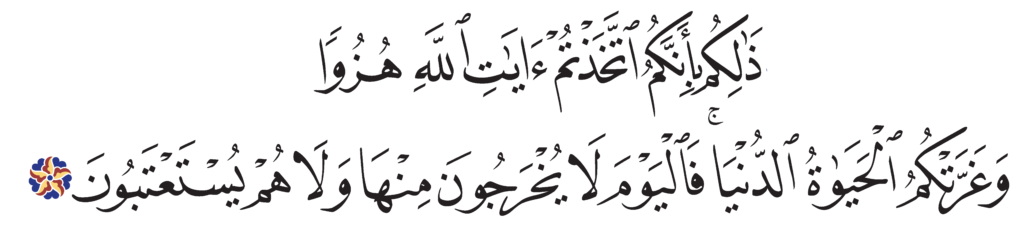 ذَٰلِكُم بِأَنَّكُمُ ٱتَّخَذْتُمْ ءَايَٰتِ ٱللَّهِ هُزُوًا
وَغَرَّتْكُمُ ٱلْحَيَوٰةُ ٱلدُّنْيَا ۚ فَٱلْيَوْمَ لَا يُخْرَجُونَ مِنْهَا وَلَا هُمْ يُسْتَعْتَبُونَ